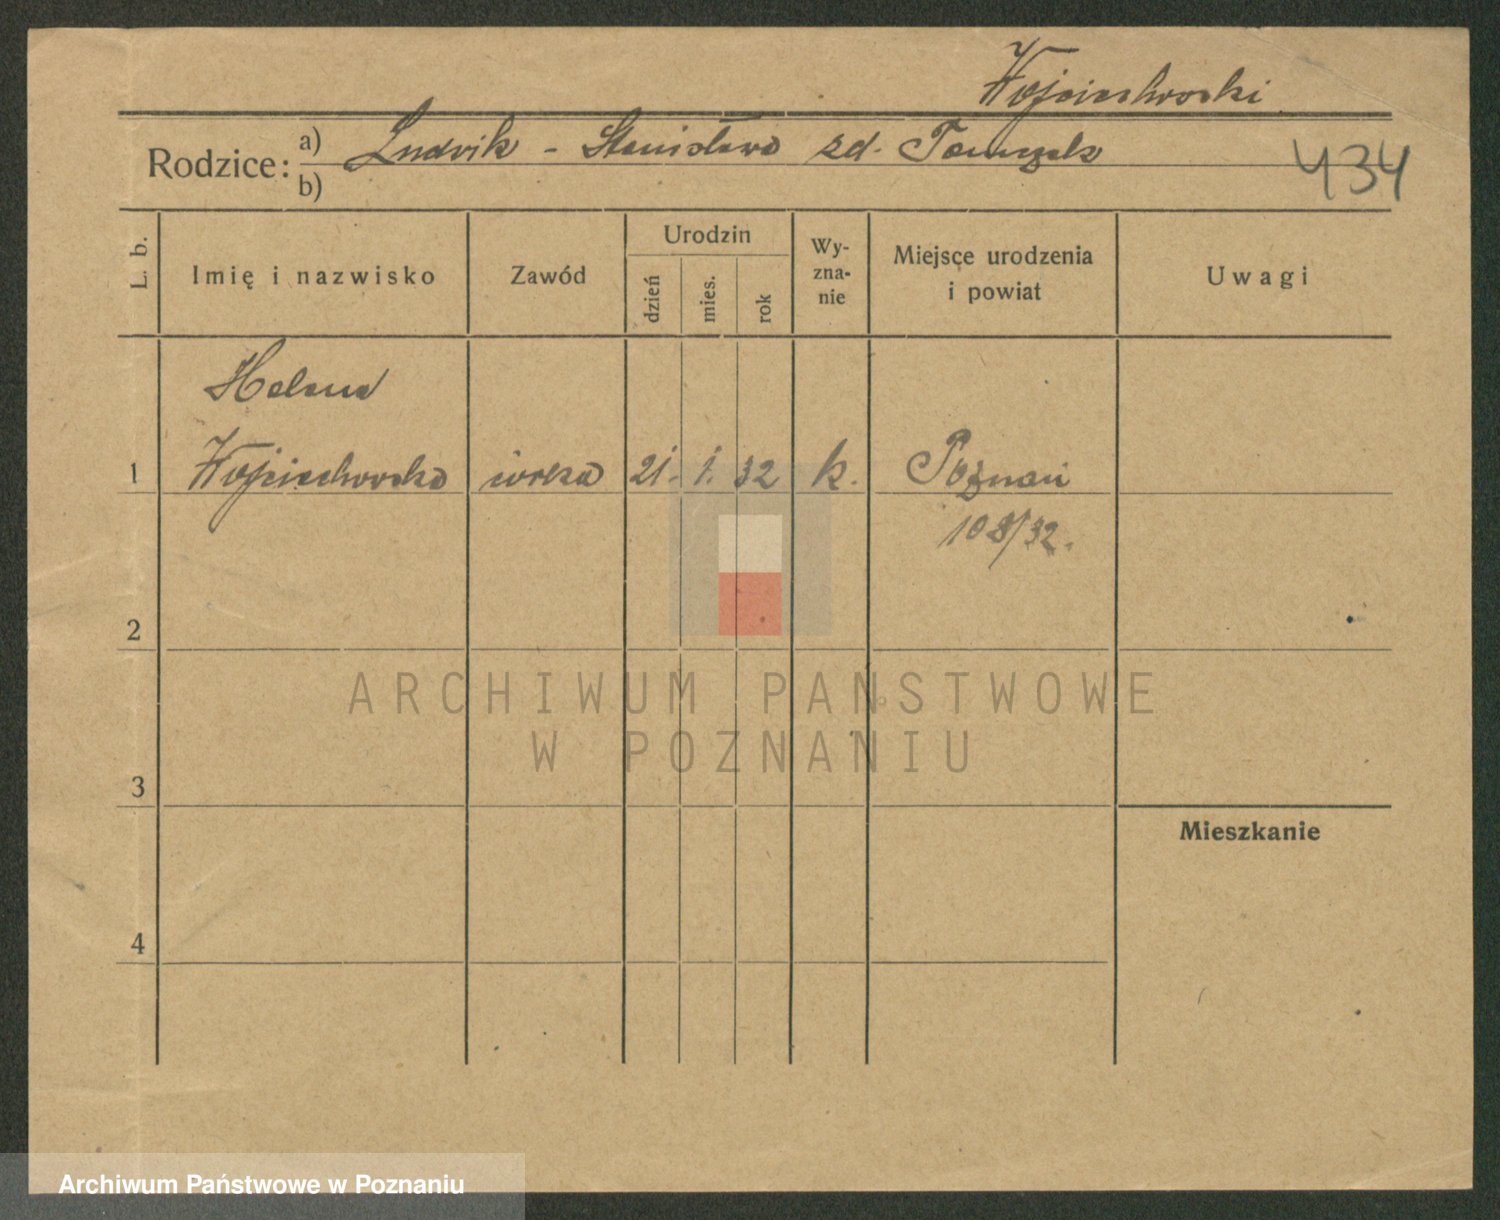 Wojciechowski
Rodzice: a) Ludwik - Stanisława zd. Tomczak
b)
434
L. b. Imię i nazwisko Zawód Urodzin dzień mies. rok Wy-zna-nie Miejsce urodzenia i powiat Uwagi
Helena
1 Wojciechowska córka 21. 1. 32 k. Poznań
108/32.
2
ARCHIWUM PAŃSTWOWE
W POZNANIU
3
Mieszkanie
4
Archiwum Państwowe w Poznaniu